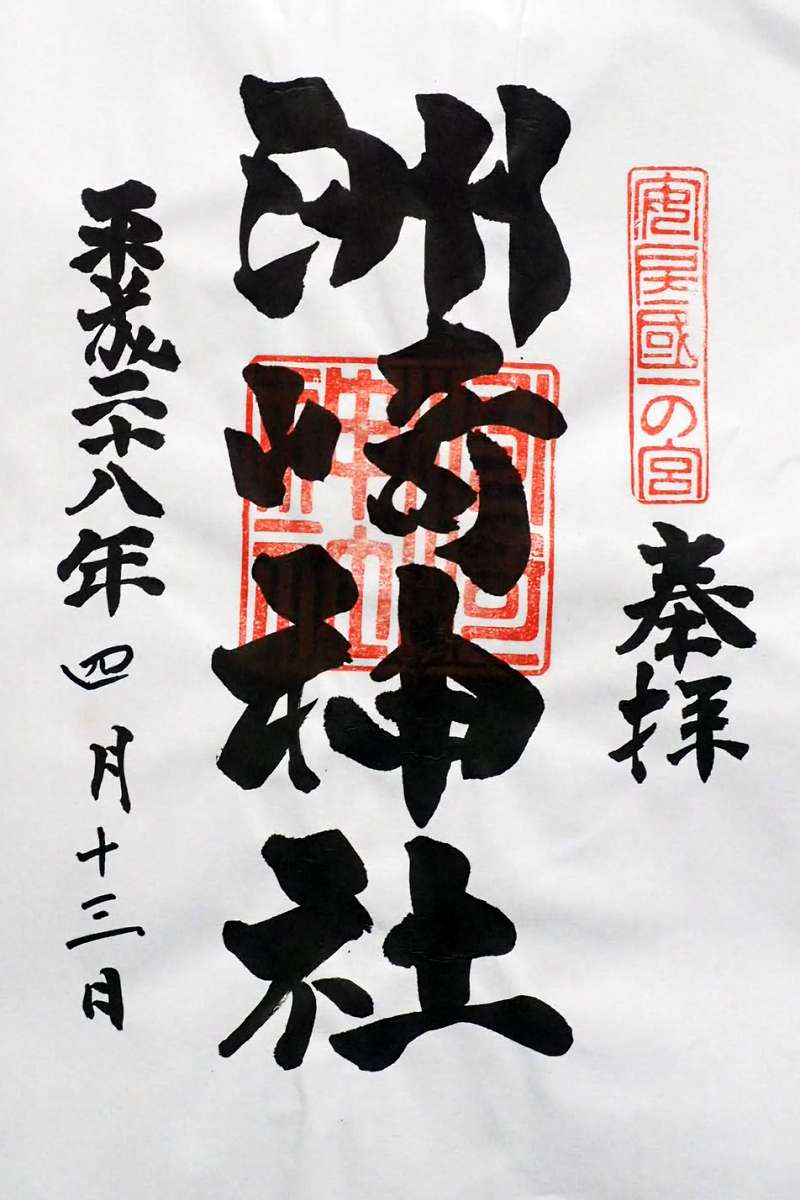 安房國一の宮
奉拝
洲崎神社
平成二十八年四月十三日